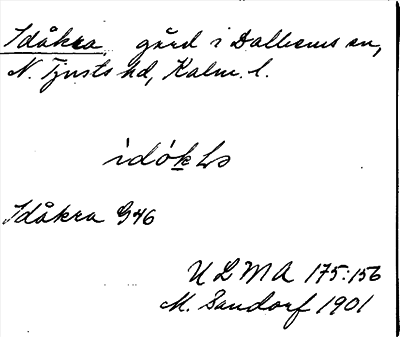 Idåkra, gård i Dalhems sn,
N. Tjusts hd, Kalm. l.
Idåkra G46
ULMA 175:156
M. Sandorf 1901